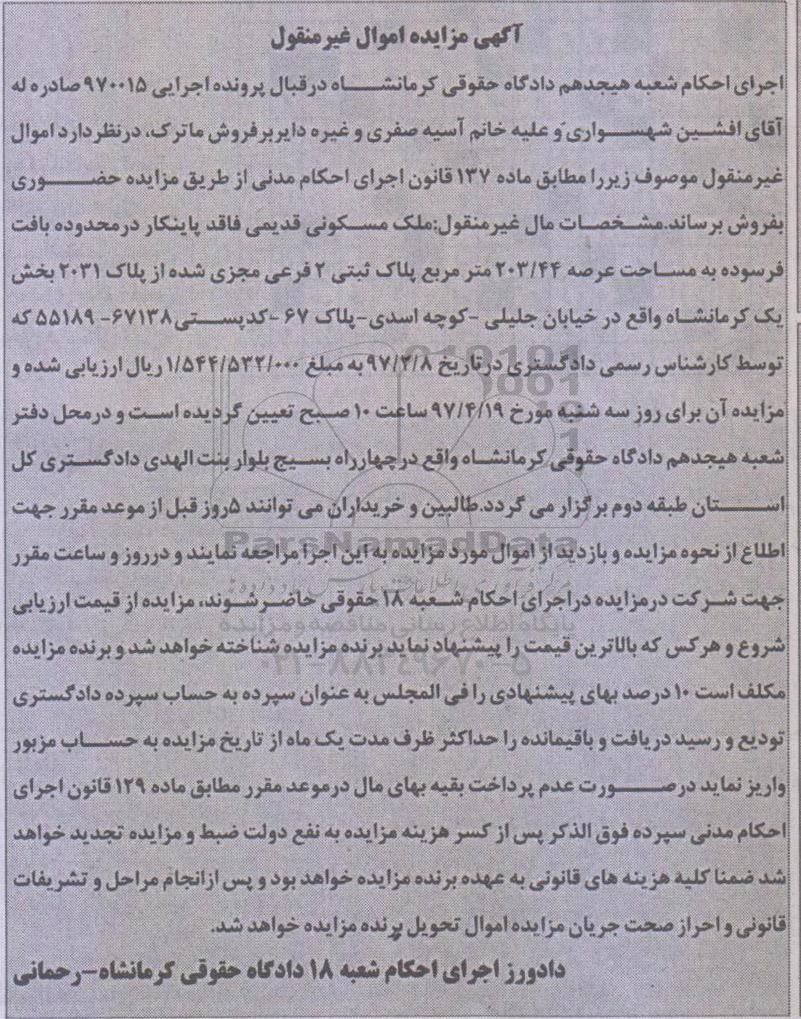 آگهی مزایده اموال غیرمنقول
اجرای احکام شعبه هیجدهم دادگاه حقوقی کرمانشاه درقبال پرونده اجرایی ۹۷۰۰۱۵ صادره له
آقای افشین شهسواری و علیه خانم آسیه صفری و غیره دایربرفروش ماترک، درنظردارد اموال
غیرمنقول موصوف زیررا مطابق ماده ۱۳۷ قانون اجرای احکام مدنی از طریق مزایده حضوری
بفروش برساند.مشخصات مال غیرمنقول:ملک مسکونی قدیمی فاقد پاینکار درمحدوده بافت
فرسوده به مساحت عرصه ۲۰۳/۴۴ متر مربع پلاک ثبتی ۲ فرعی مجزی شده از پلاک ۲۰۳۱ بخش
یک کرمانشاه واقع در خیابان جلیلی -کوچه اسدی-پلاک ۶۷ -کدپستی۶۷۱۳۸- ۵۵۱۸۹ که
توسط کارشناس رسمی دادگستری درتاریخ ۹۷/۳/۸ به مبلغ ۱/۵۴۴/۵۳۲/۰۰۰ ریال ارزیابی شده و
مزایده آن برای روز سه شنبه مورخ ۹۷/۴/۱۹ ساعت ۱۰ صبح تعیین گردیده است و درمحل دفتر
شعبه هیجدهم دادگاه حقوقی کرمانشاه واقع درچهارراه بسیج بلوار بنت الهدی دادگستری کل
استان طبقه دوم برگزار می گردد.طالبین و خریداران می توانند ۵روز قبل از موعد مقرر جهت
اطلاع از نحوه مزایده و بازدید از اموال مورد مزایده به این اجرا مراجعه نمایند و درروز و ساعت مقرر
جهت شرکت درمزایده دراجرای احکام شعبه ۱۸ حقوقی حاضرشوند، مزایده از قیمت ارزیابی
شروع و هرکس که بالاترین قیمت را پیشنهاد نماید برنده مزایده شناخته خواهد شد و برنده مزایده
مکلف است ۱۰ درصد بهای پیشنهادی را فی المجلس به عنوان سپرده به حساب سپرده دادگستری
تودیع و رسید دریافت و باقیمانده را حداکثر ظرف مدت یک ماه از تاریخ مزایده به حساب مزبور
واریز نماید درصورت عدم پرداخت بقیه بهای مال درموعد مقرر مطابق ماده ۱۲۹ قانون اجرای
احکام مدنی سپرده فوق الذکر پس از کسر هزینه مزایده به نفع دولت ضبط و مزایده تجدید خواهد
شد ضمنا کلیه هزینه های قانونی به عهده برنده مزایده خواهد بود و پس ازانجام مراحل و تشریفات
قانونی و احراز صحت جریان مزایده اموال تحویل برنده مزایده خواهد شد.
دادورز اجرای احکام شعبه ۱۸ دادگاه حقوقی کرمانشاه-رحمانی
ParsNamadData
پایگاه اطلاع رسانی مناقصه و مزایده
۰۲۱-۸۸۳۴۹۶۷۰-۵